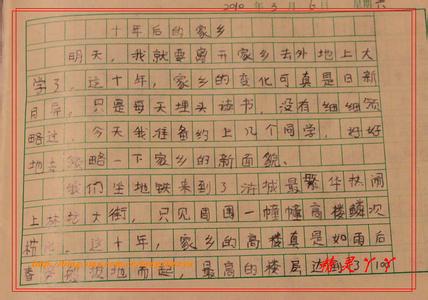 2010年3月6日 星期六
十年后的家乡
明天，我就要离开家乡去外地上大
学了，这十年，家乡的变化可真是日新
月异，只是每天埋头读书，没有细细领
略过，今天我准备约上几个同学，好好
地去领略一下家乡的新面貌。
我们坐地铁来到了涪城最繁华热闹
上林苑大街，只见周围一幢幢高楼鳞次
栉比，这十年，家乡的高楼真是如雨后
春笋般拔地而起，最高的楼层达到了